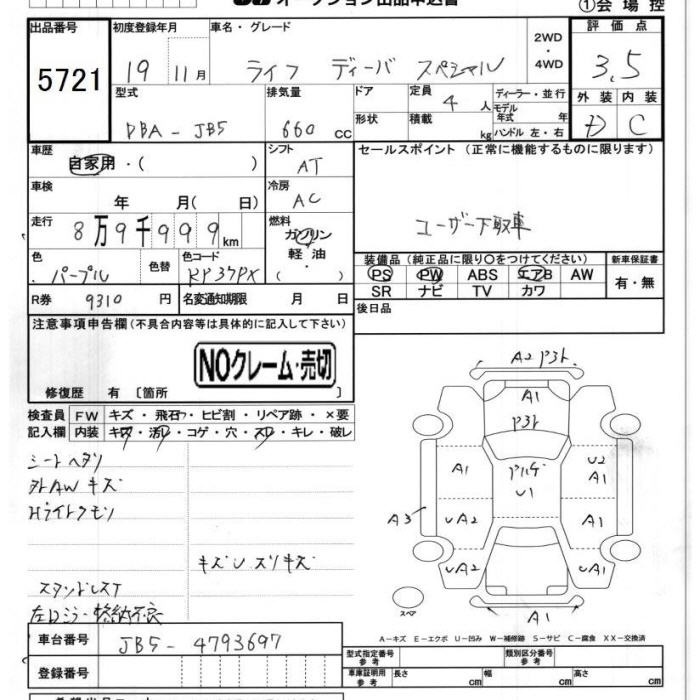 オークション出品申込書
①会場控
出品番号 初度登録年月 車名・グレード 2WD・4WD 評価点
5721 19年 11月 ライフ ディーバ スペシャル 3.5
型式 排気量 ドア 定員 4人 ディーラー・並行 外装 内装
モデル年式 年
DBA-JB5 660cc 形状 積載 kg ハンドル 左・右 D C
車歴 シフト セールスポイント (正常に機能するものに限ります)
自家用・( ) AT
車検 冷房
年 月( 日) AC
走行 燃料 ユーザー下取車
8万9千999km ガソリン
軽油
・
( )
色 色替 色コード 装備品 (純正品に限り〇をつけてください) 新車保証書
パープル RP37PX PS PW ABS エアB AW 有・無
SR ナビ TV カワ
R券 9310円 名変通知期限 月 日 後日品
注意事項申告欄 (不具合内容等は具体的に記入して下さい)
NOクレーム・売切
修復歴 有 〔箇所 〕
検査員 FW キズ・飛石・ヒビ割・リペア跡・×要
記入欄 内装 キズ・汚レ・コゲ・穴・スレ・キレ・破レ
シートヘタリ
外AWキズ
Hライトクモリ
キズUスリキズ
スタンドレスT
左ロミラー格納不良
A2 P3ト
A1
P3ト
A1
U2
A1
アルゲ
U1
A3
UA2
A1
UA2
UA1
スペア
A1
A-キズ E-エクボ U-凹み W-補修跡 S-サビ C-腐食 XX-交換済
車台番号 JB5-4793697
型式指定番号 参考 類別区分番号 参考
登録番号 車庫証明用 参考 長さ cm 幅 cm 高さ cm